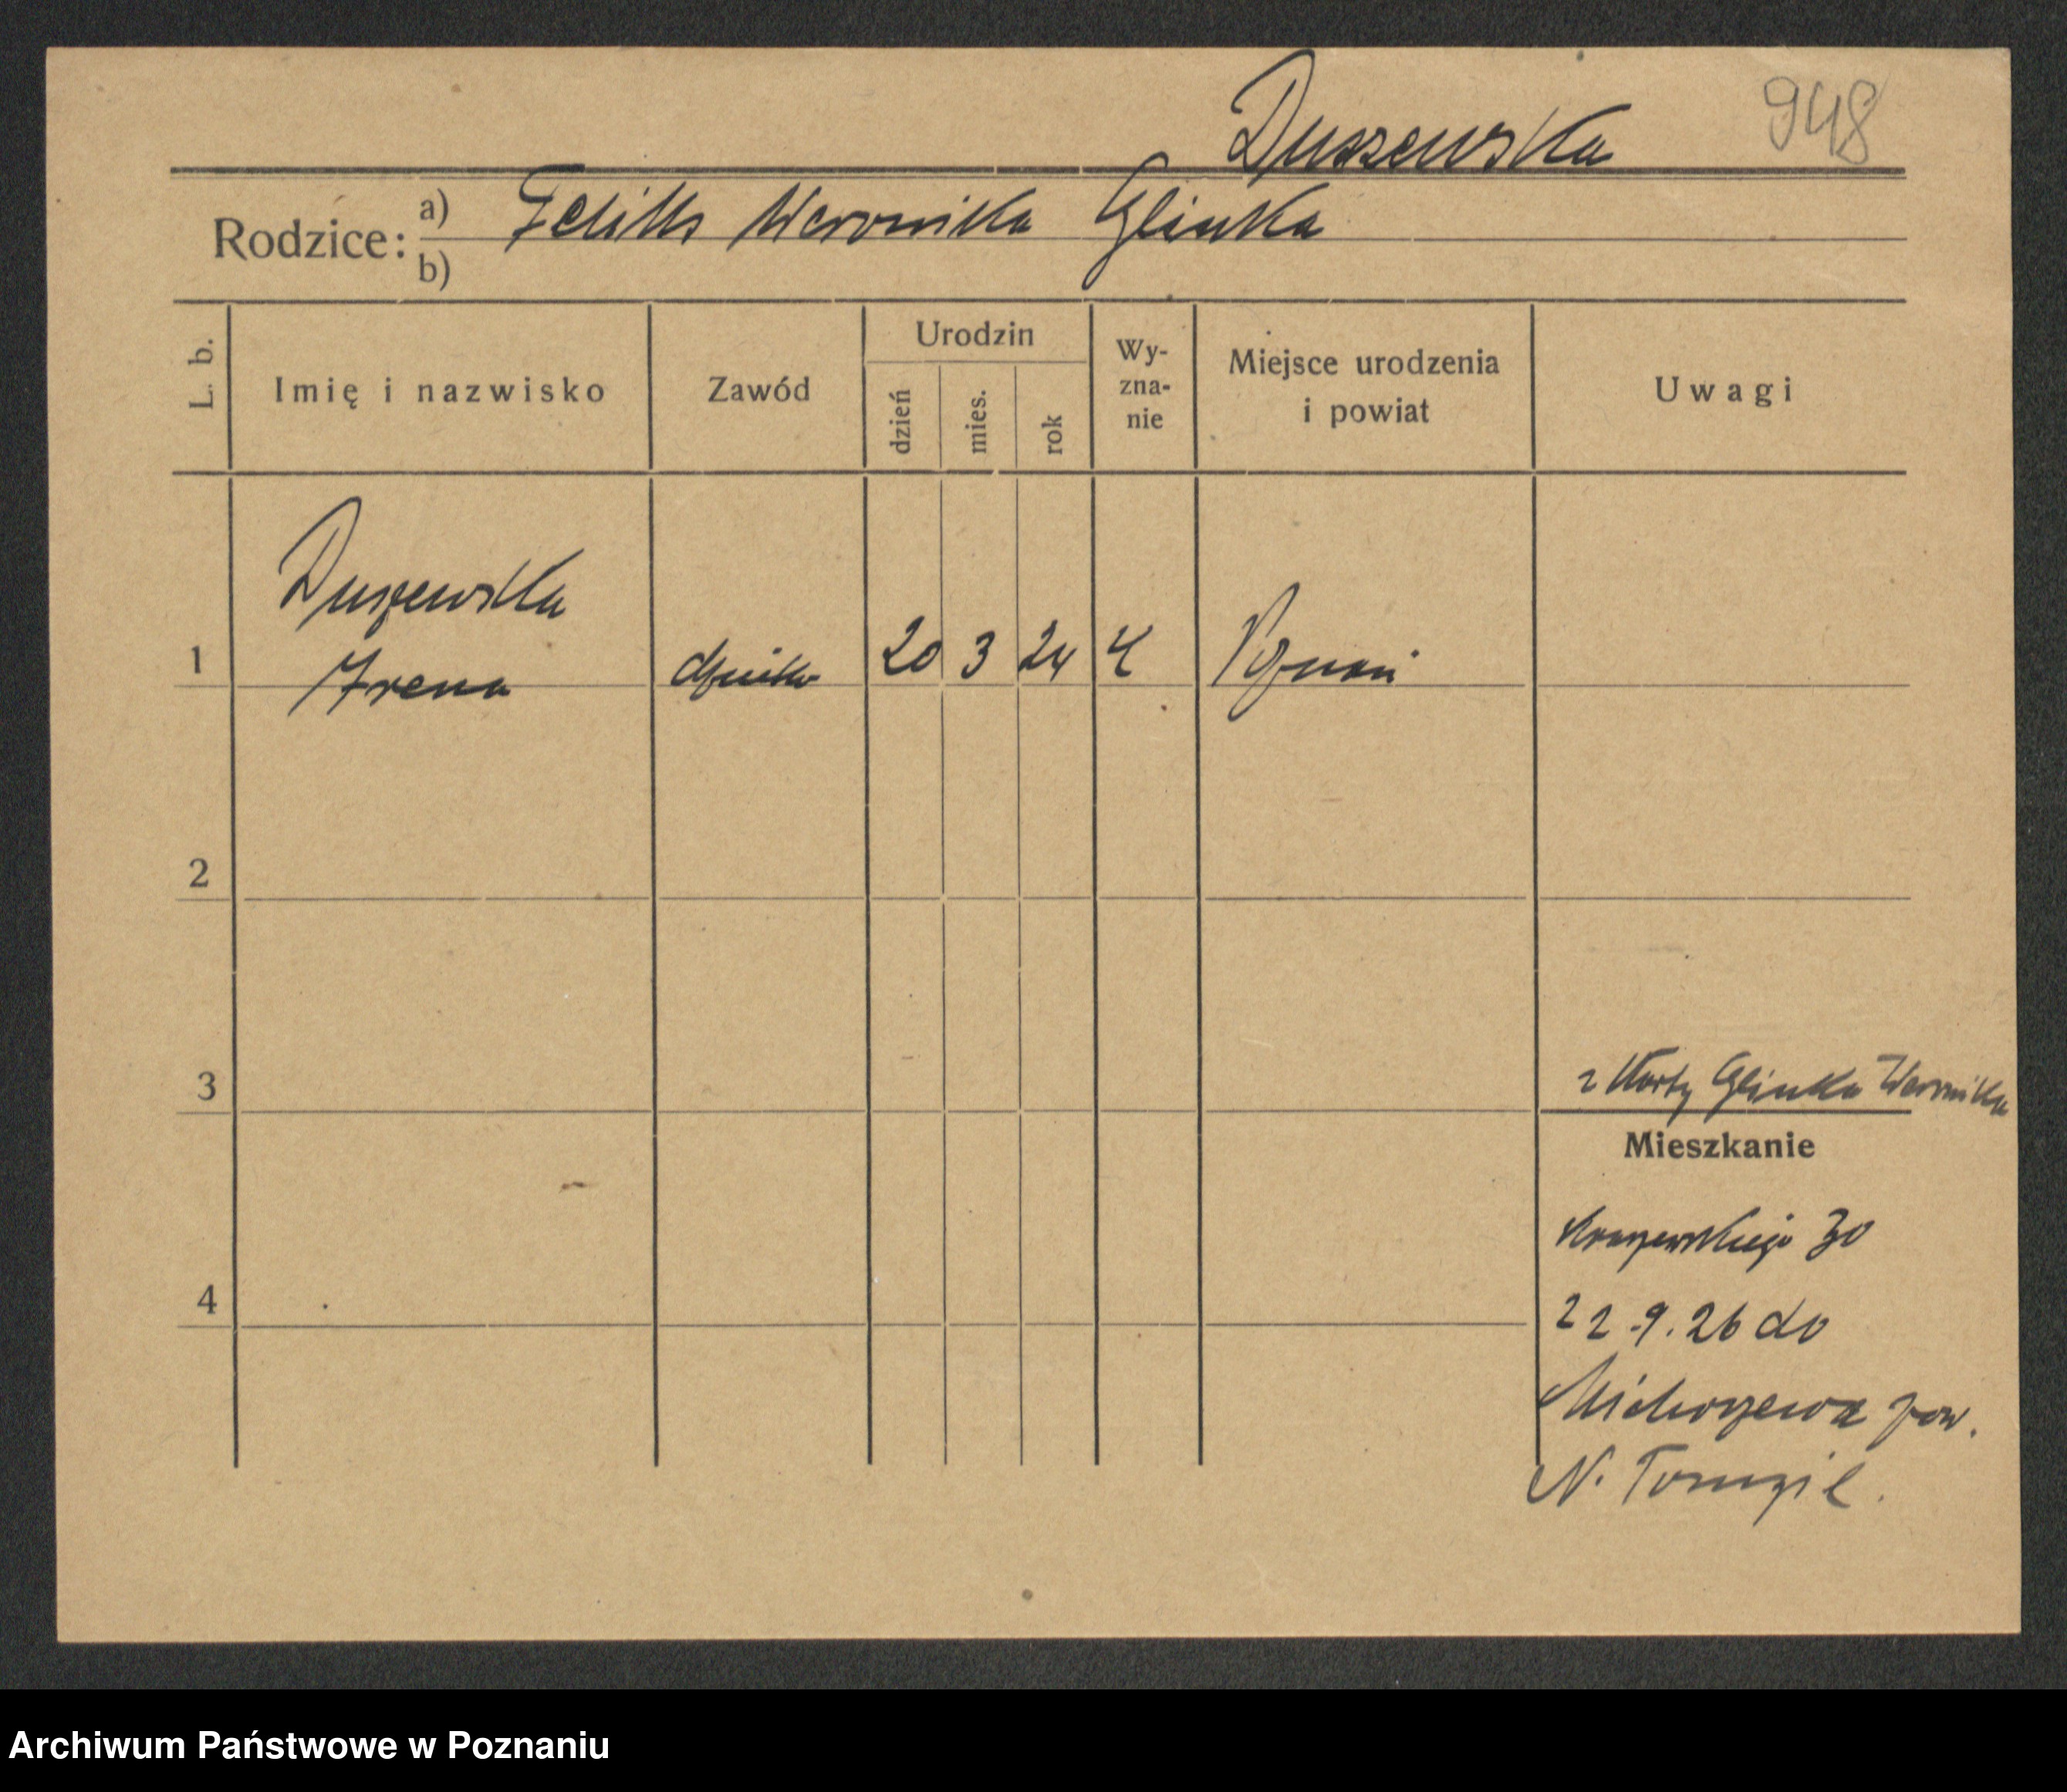 Duszewska 948
Rodzice: a) Feliks Weronika Glinka
b)
L. b. Imię i nazwisko Zawód Urodzin dzień mies. rok Wy-zna-nie Miejsce urodzenia i powiat Uwagi
Duszewska
1 Irena 20 3 24 Poznań
2
3 z Karty Glinka Weronika
Mieszkanie
Kraszewskiego 30
4 22.9.26 do
Michorzewa pow.
N. Tomyśl.
Archiwum Państwowe w Poznaniu